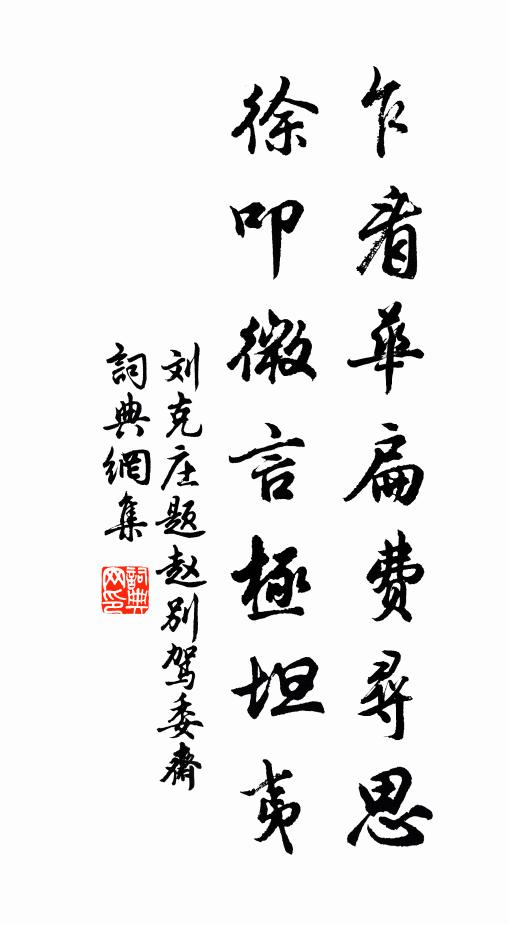 乍看華扁费尋思
徐叩微言極坦夷
刘克庄题赵别驾委齋
詞典網集
詞典
网印